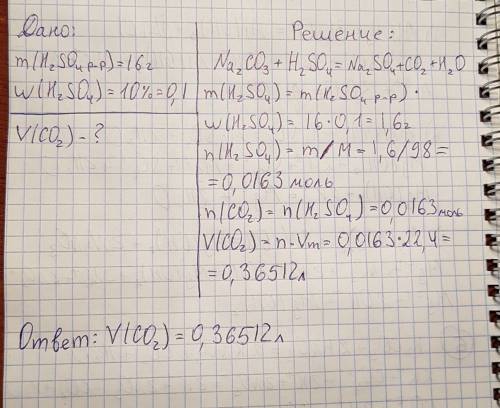 Дано:
m(H₂SO₄ р-р)=16г
w(H₂SO₄)=10%=0,1
V(CO₂)-?
Решение:
Na₂CO₃+H₂SO₄=Na₂SO₄+CO₂+H₂O
m(H₂SO₄)=m(H₂SO₄ р-р)·
w(H₂SO₄)=16·0,1=1,6г
n(H₂SO₄)=m/M=1,6/98=
=0,0163 моль
n(CO₂)=n(H₂SO₄)=0,0163моль
V(CO₂)=n·Vm=0,0163·22,4=
=0,36512л
Ответ: V(CO₂)=0,36512л